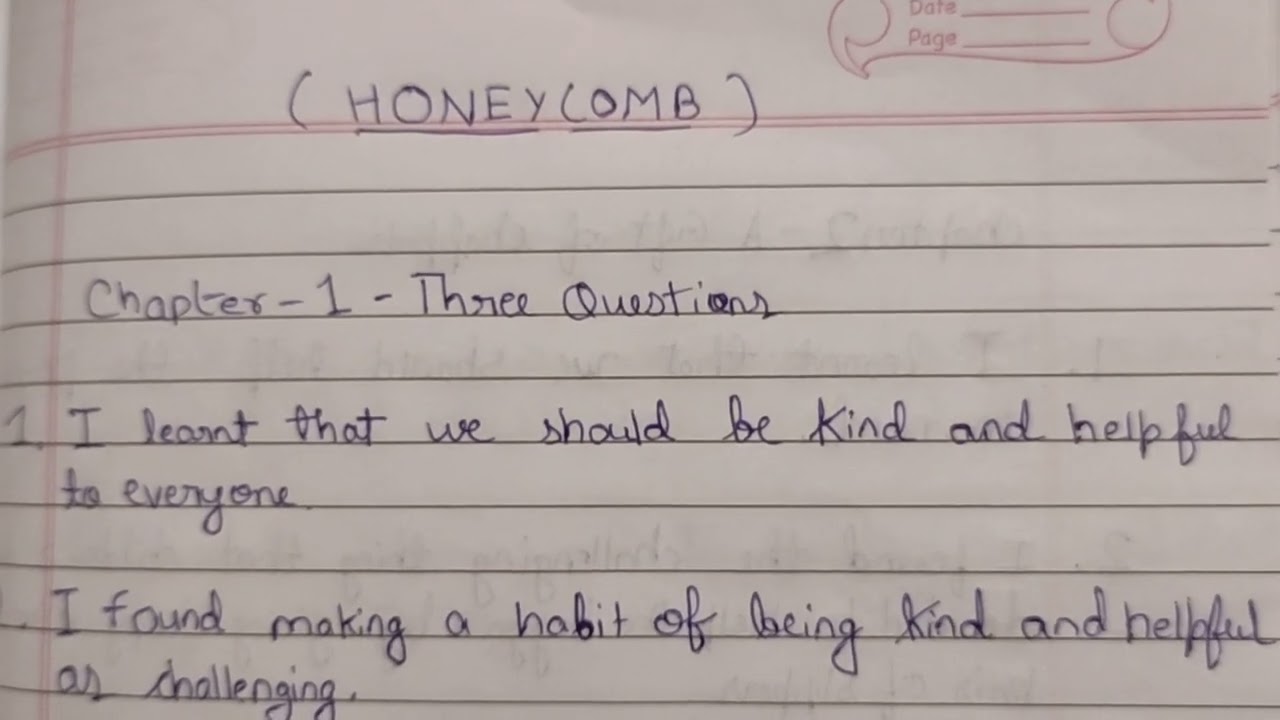 Date
Page
( HONEYCOMB )
Chapter - 1 - Three Questions
1. I learnt that we should be kind and helpful
to everyone.
I found making a habit of being kind and helpful
as challenging.